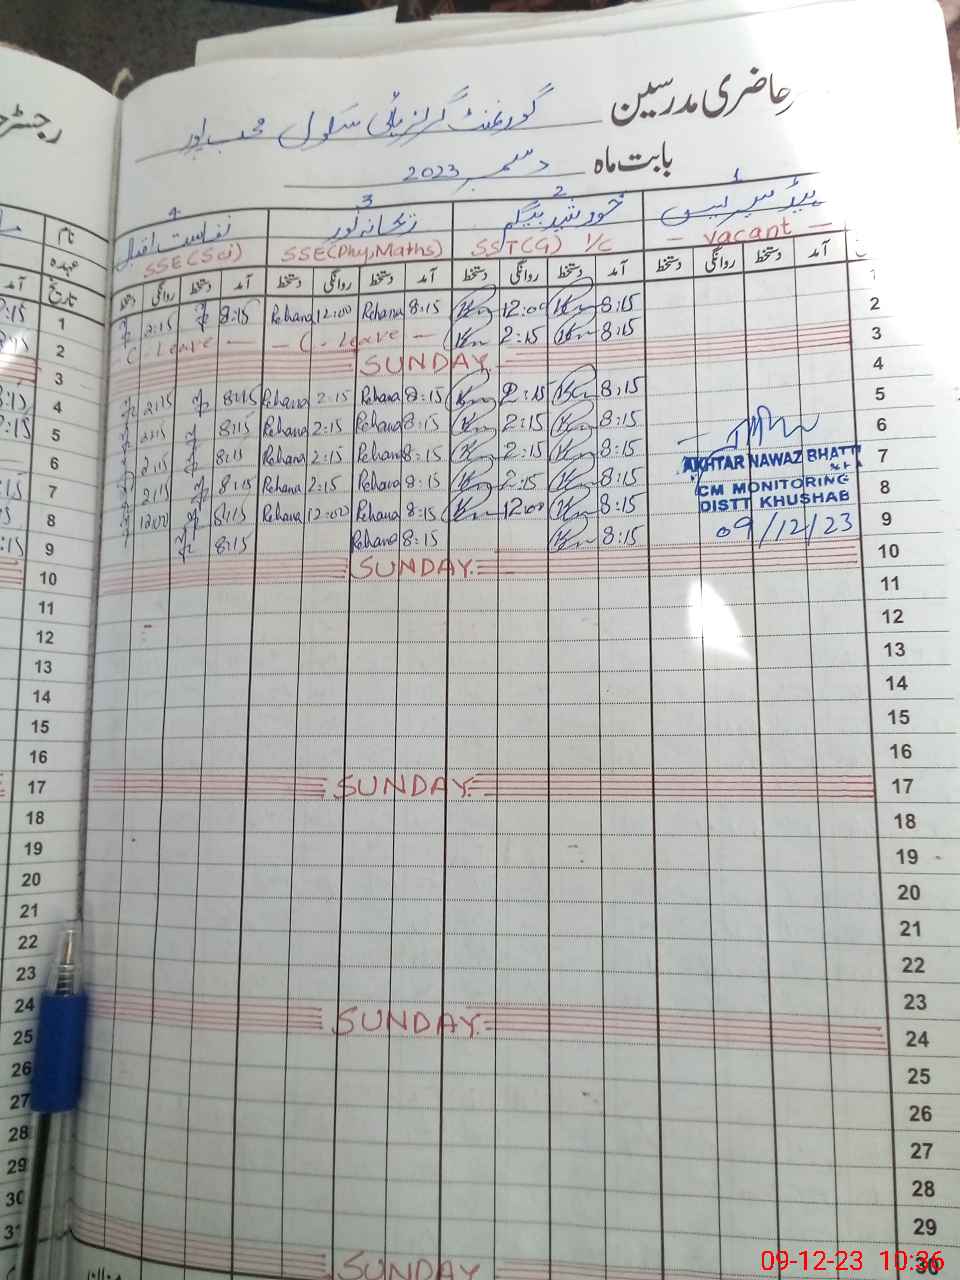 حاضری مدرسین گورنمنٹ گرلز ہائی سکول محب پور
بابت ماہ دسمبر 2023
1 2 3 4
خورشید بیگم
نفاست اقبال
نام
عہدہ
تاریخ
- vacant -
SST(G) I/C
SSE(Phy,Maths)
SSE(Sci)
آمد دستخط روانگی دستخط آمد دستخط روانگی دستخط آمد دستخط روانگی دستخط آمد دستخط روانگی دستخط
1 8:15 12:00 8:15 Rehana 12:00 Rehana 8:15 2:15
2 8:15 2:15 C. Leave C. Leave
3 SUNDAY
4 8:15 2:15 8:15 Rehana 2:15 Rehana 8:15 2:15
5 8:15 2:15 8:15 Rehana 2:15 Rehana 8:15 2:15
6 8:15 2:15 8:15 Rehana 2:15 Rehana 8:15 2:15
7 8:15 2:15 8:15 Rehana 2:15 Rehana 8:15 2:15
8 8:15 12:00 8:15 Rehana 12:00 Rehana 8:15 12:00
9 8:15 8:15 Rehana 8:15
10 SUNDAY
AKHTAR NAWAZ BHATTI
CM MONITORING
DISTT KHUSHAB
09/12/23
11
12
13
14
15
16
17 SUNDAY
18
19
20
21
22
23
24 SUNDAY
25
26
27
28
29
30
31 SUNDAY
09-12-23 10:36